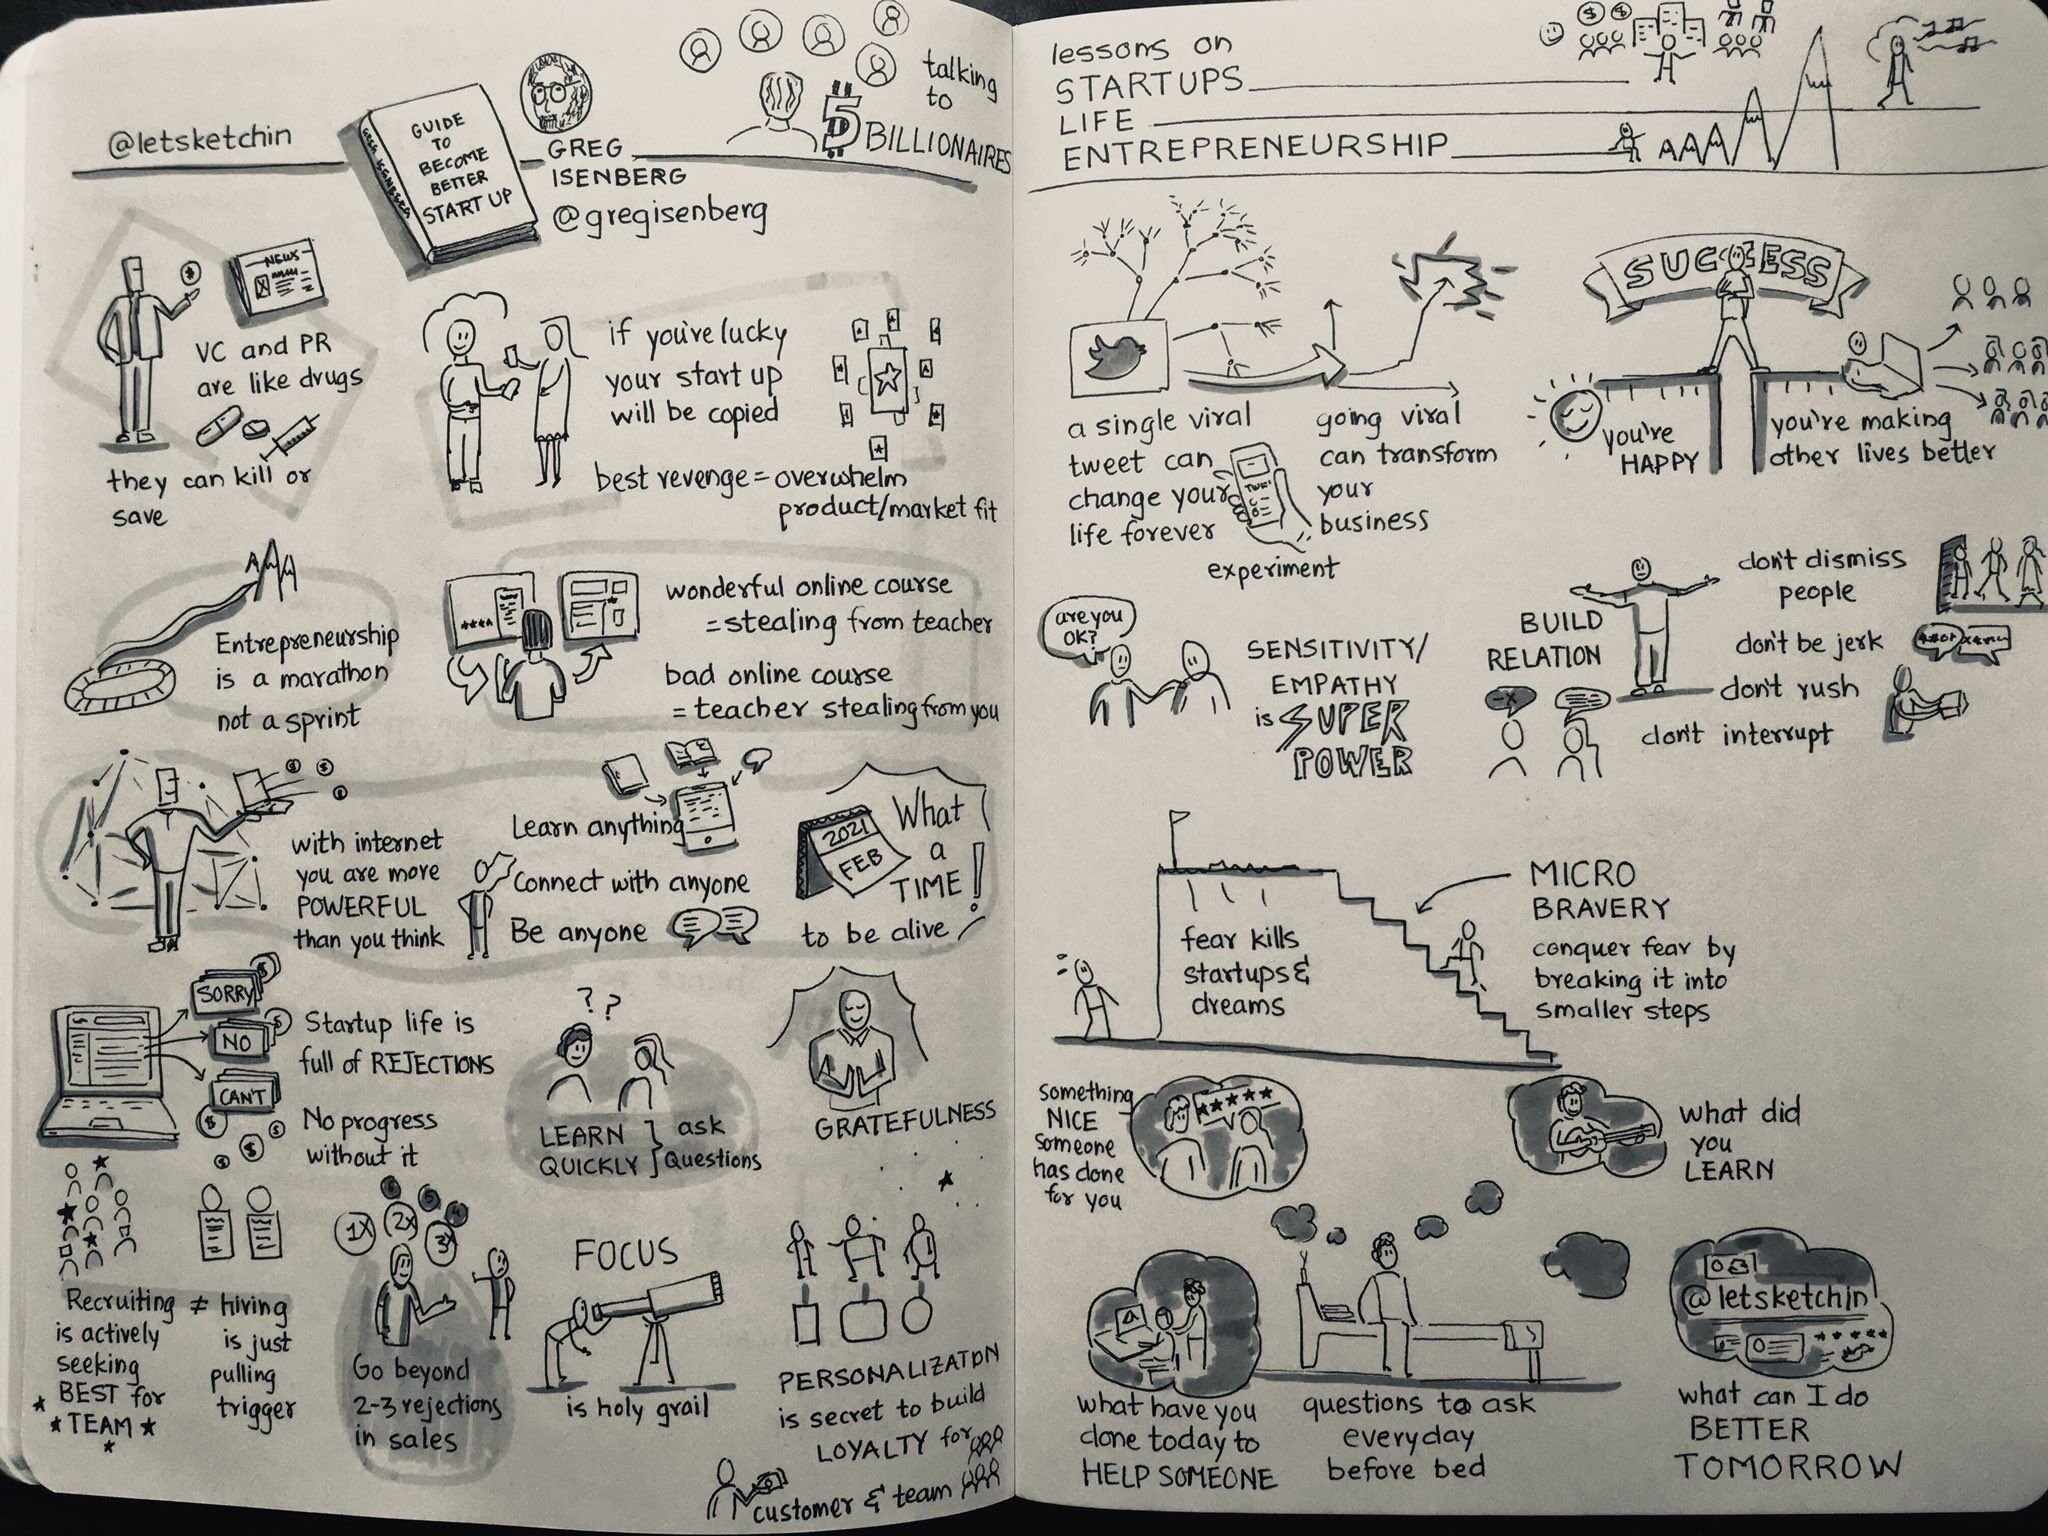 @letsketchin
GREG ISENBERG
GUIDE
TO
BECOME
BETTER
START UP
GREG
ISENBERG
@gregisenberg
talking
to
5
BILLIONAIRES
$
NEWS
VC and PR
are like drugs
they can kill or
save
if you've lucky
your start up
will be copied
best revenge = overwhelm
product/market fit
Entrepreneurship
is a marathon
not a sprint
wonderful online course
= stealing from teacher
bad online course
= teacher stealing from you
$ $
$
with internet
you are more
POWERFUL
than you think
Learn anything
Connect with anyone
Be anyone
2021
FEB
What
a
TIME!
to be alive
SORRY
NO
CAN'T
$
$
$
$
$
$
Startup life is
full of REJECTIONS
No progress
without it
? ?
LEARN
QUICKLY
ask
Questions
GRATEFULNESS
Recruiting ≠ hiring
is actively
seeking
BEST for
TEAM
is just
pulling
trigger
1x
2x
3x
4
5
6
Go beyond
2-3 rejections
in sales
FOCUS
is holy grail
PERSONALIZATION
is secret to build
LOYALTY for
customer & team
lessons on
STARTUPS
LIFE
ENTREPRENEURSHIP
$ $
a single viral
tweet can
change your
life forever
going viral
can transform
your
business
experiment
SUCCESS
you're
HAPPY
you're making
other lives better
are you
OK?
SENSITIVITY/
EMPATHY
is SUPER
POWER
BUILD
RELATION
don't dismiss
people
don't be jerk
don't rush
don't interrupt
fear kills
startups &
dreams
MICRO
BRAVERY
conquer fear by
breaking it into
smaller steps
something
NICE
someone
has done
for you
what did
you
LEARN
what have you
done today to
HELP SOMEONE
questions to ask
everyday
before bed
@letsketchin
what can I do
BETTER
TOMORROW